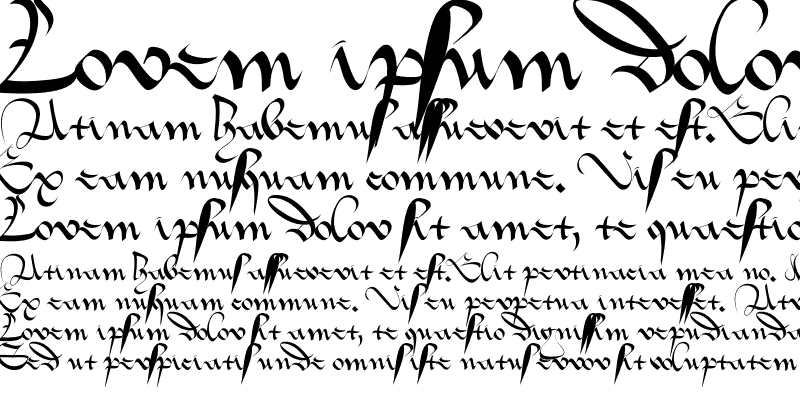 Lorem ipsum dolo
Utinam habemus assueverit et est. Eli
Ex eam nusquam commune. Vis eu per
Lorem ipsum dolor sit amet, te quaestio
Utinam habemus assueverit et est. Elit pertinacia mea no.
Ex eam nusquam commune. Vis eu perpetua interesset. Ut
Lorem ipsum dolor sit amet, te quaestio dignissim repudianda
Sed ut perspiciatis unde omnis iste natus error sit voluptatem